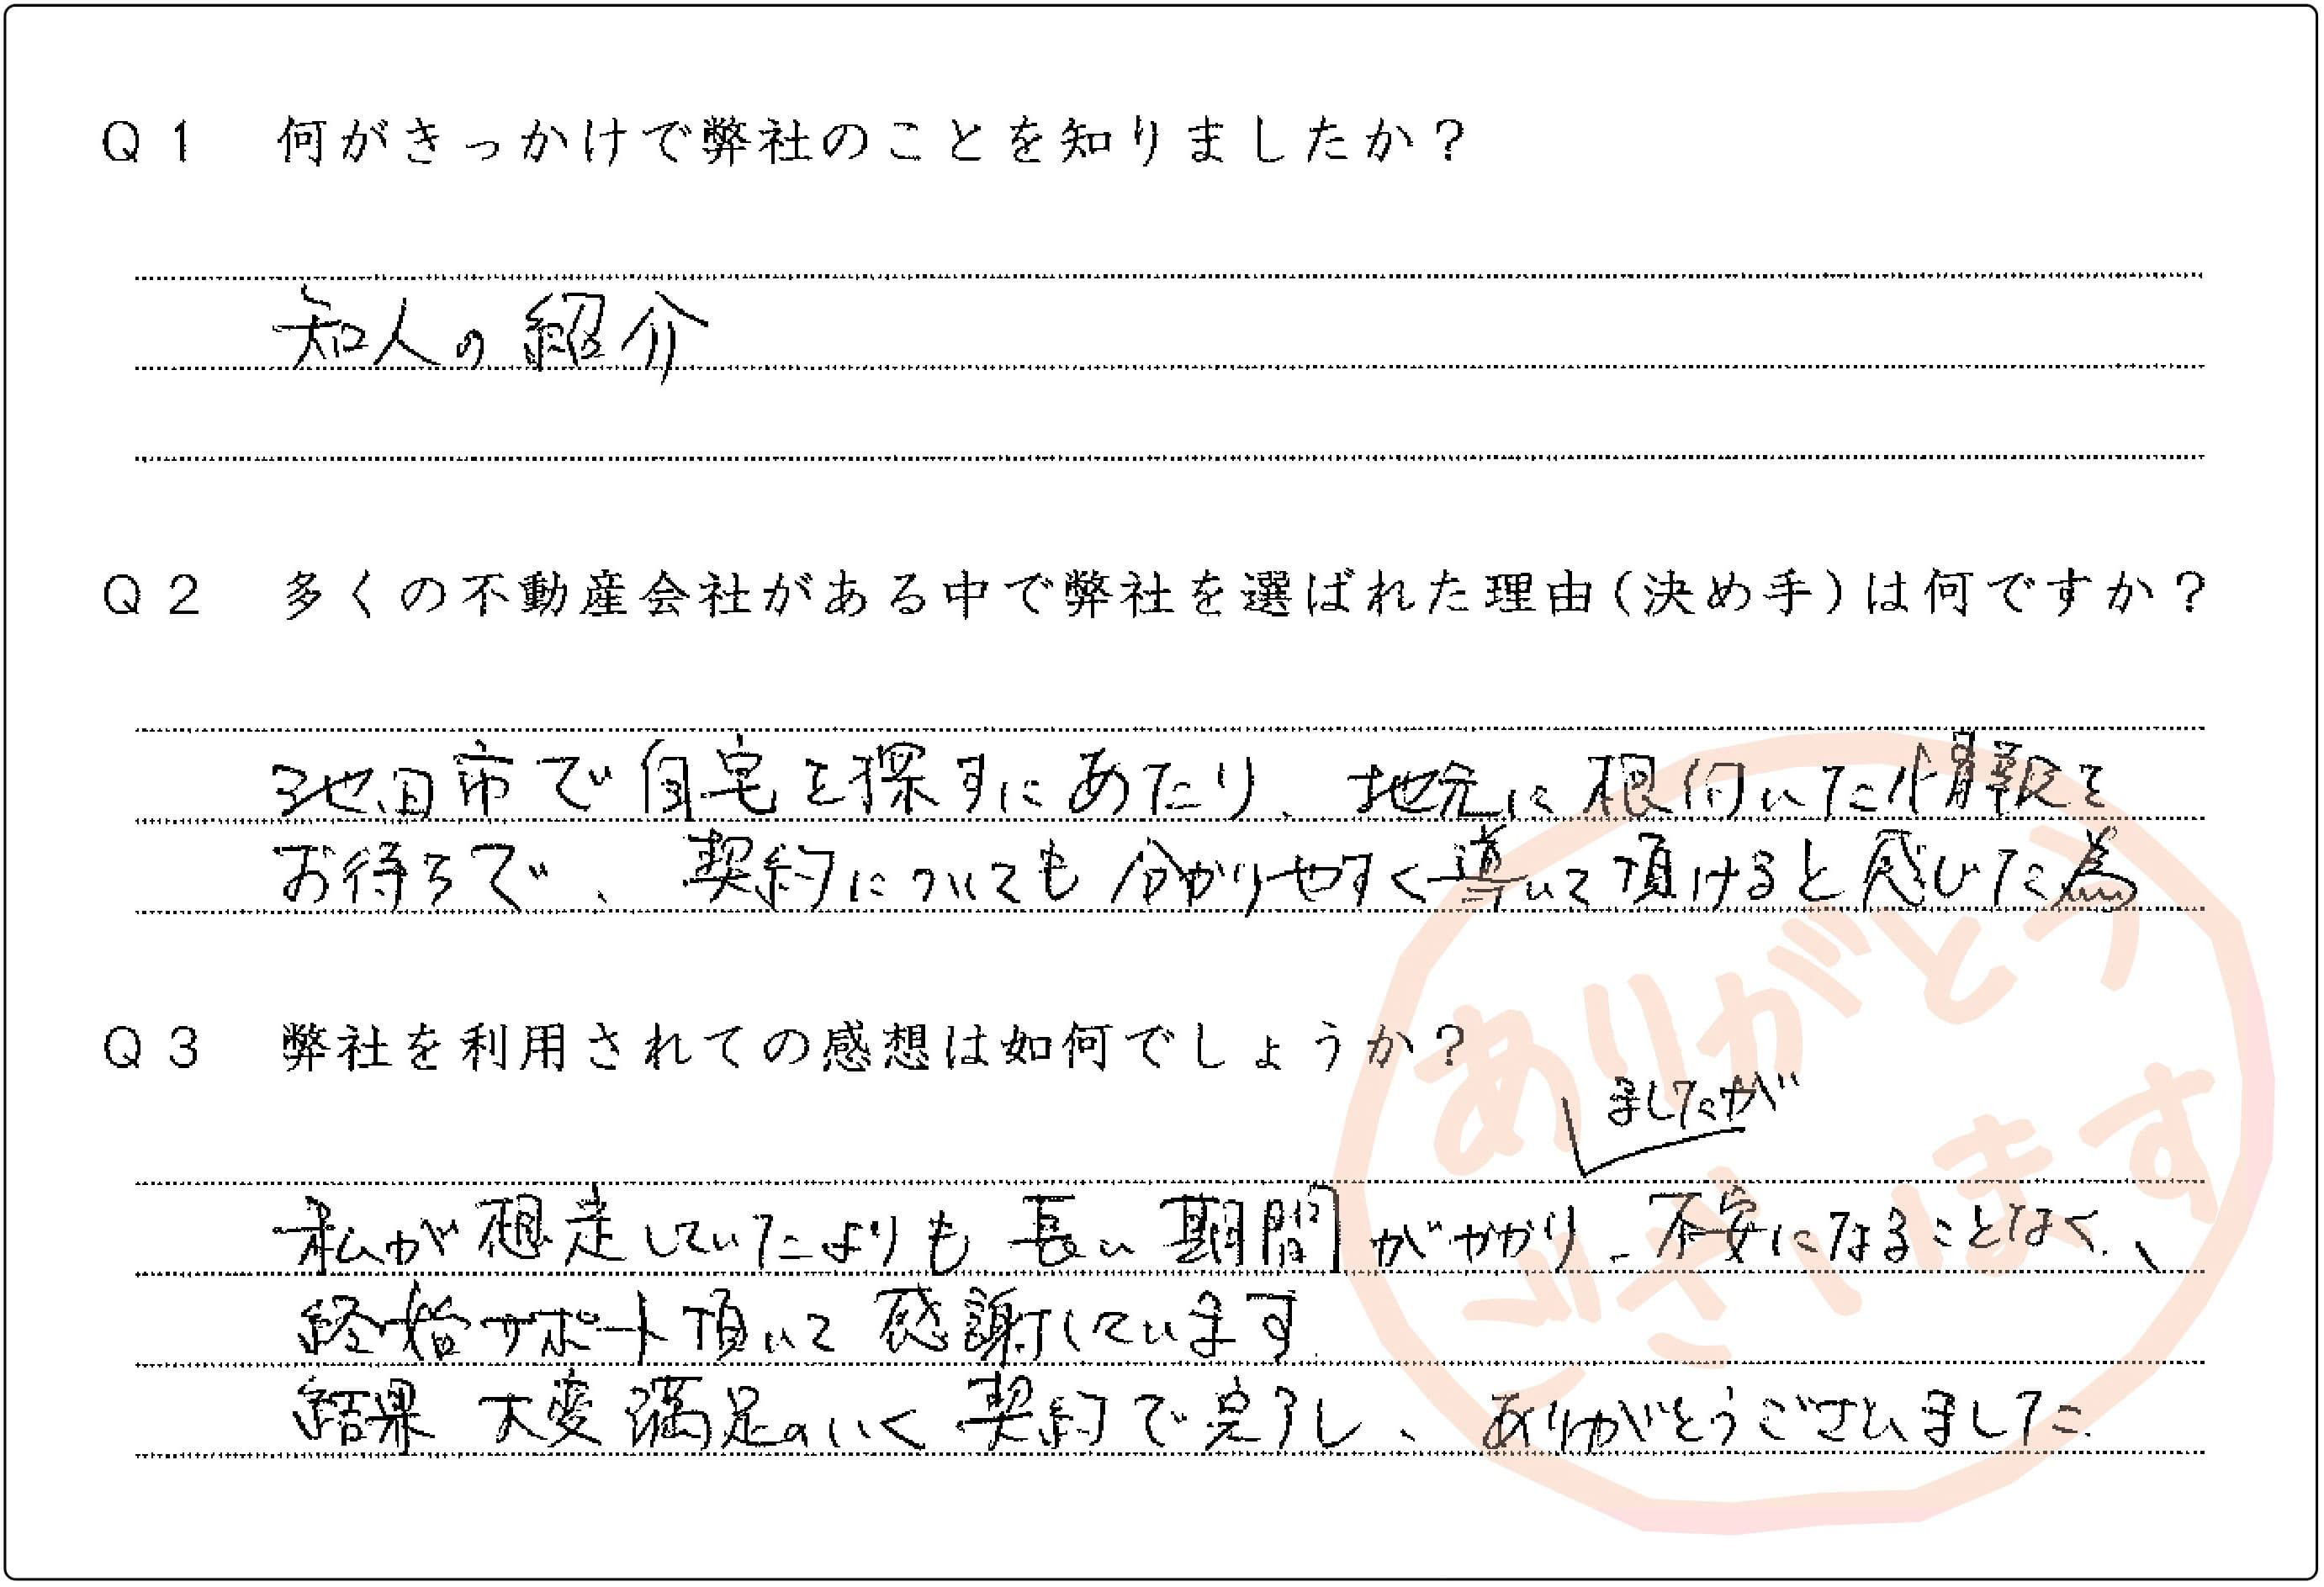 Q1 何がきっかけで弊社のことを知りましたか？
知人の紹介
Q2 多くの不動産会社がある中で弊社を選ばれた理由(決め手)は何ですか？
池田市で自宅を探すにあたり、地元に根付いた情報を
お待ちで、契約についても分かりやすく導いて頂けると感じた為
Q3 弊社を利用されての感想は如何でしょうか？
ましたが
私が想定していたよりも長い期間がかかり、不安になることなく、
終始サポート頂いて感謝しています.
結果 大変満足のいく契約で完了し、ありがとうございました.
ありがとう
ございます